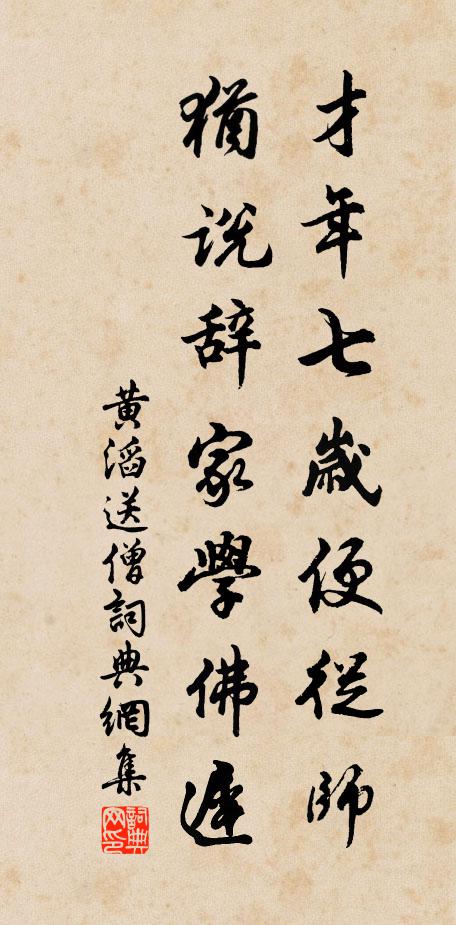 才年七歲便從師
猶説辭家學佛遲
黃滔送僧詞典網集
詞典網印